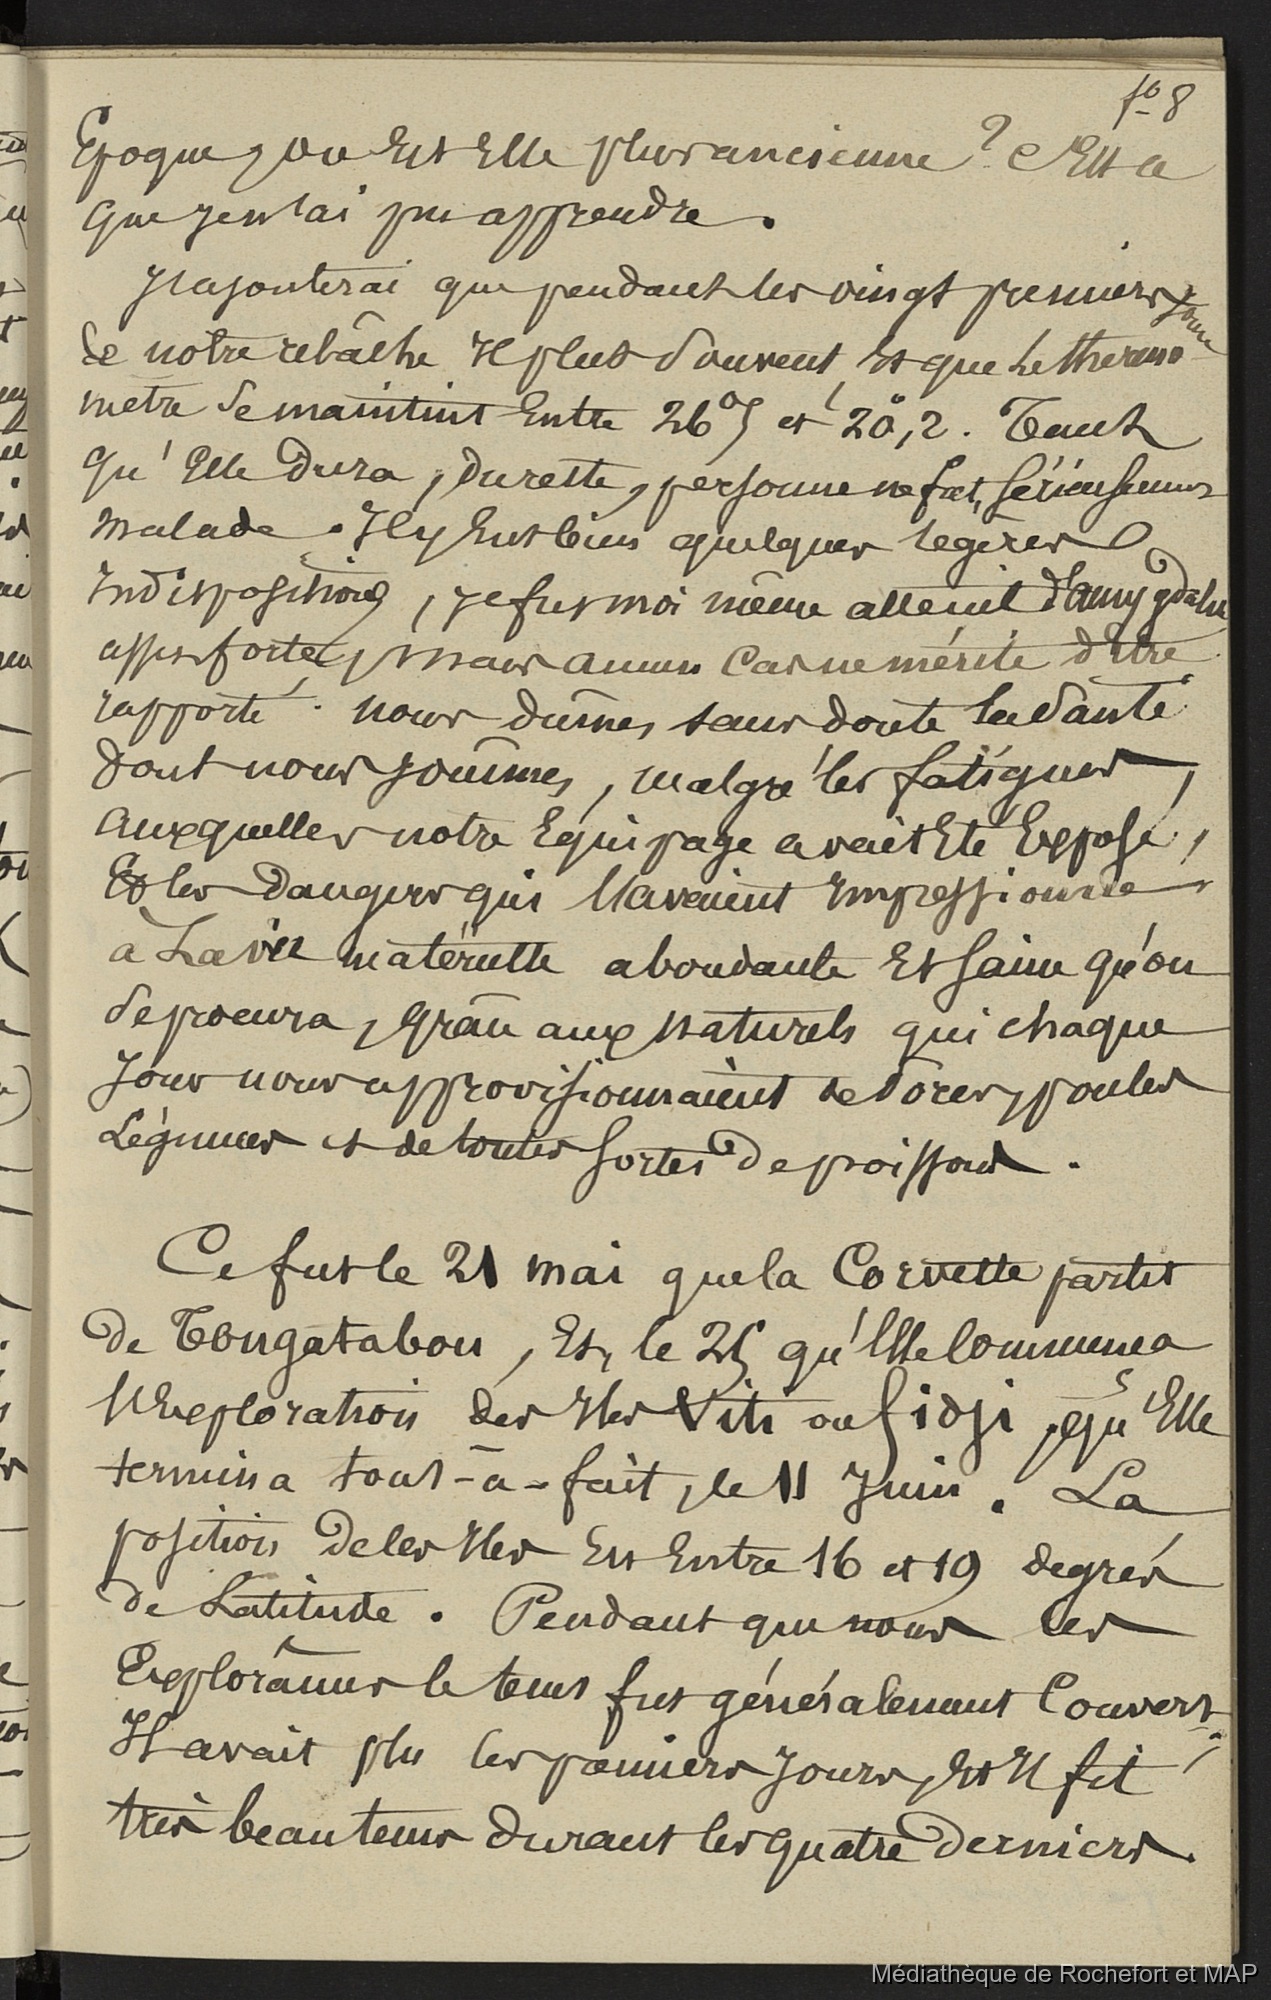 fo 8
Epoque, ou Est Elle plus ancienne ? C'Est ce
que je n'ai pu apprendre.
J'rajouterai que pendant les vingt premiers jours
de notre relâche Il plut souvent, Et que le thermo-
mètre se maintint Entre 26°5 et 20°,2. Tant
qu'Elle dura, du reste, personne ne fut, sérieusement
malade. Il y Eut bien quelques légères
Indispositions, je fus moi même atteint d'amygdalite
assez forte, mais aucun Cas ne mérite d'Etre
rapporté. Nous dûmes, sans doute la santé
dont nous jouîmes, malgré les fatigues,
auxquelles notre Equipage avait Eté Exposé,
Et les dangers qui l'avaient Impressionné,
à La vie matérielle abondante Et saine qu'on
se procura, grâce aux naturels qui chaque
Jour nous approvisionnaient de porcs, poules
Légumes et de toutes sortes de poissons.
Ce fut le 21 mai que la Corvette partit
de Tongatabou, Et, le 25 qu'Elle Commença
l'Exploration des Iles Viti ou Fidji, qu'Elle
termina tout-à-fait, le 11 Juin. La
position de ces Iles Est Entre 16 et 19 degrés
de Latitude. Pendant que nous les
Explorâmes le tems fut généralement Couvert;
Il avait plu les premiers Jours, Et Il fit
très beau tems durant les quatre derniers.
Médiathèque de Rochefort et MAP